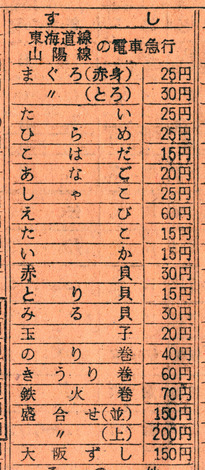 すし
東海道線
山陽線 の電車急行
まぐろ(赤身) 25円
〃 (とろ) 30円
たい 25円
ひらめ 25円
こはだ 15円
あなご 20円
しゃこ 25円
えび 60円
たこ 15円
いか 15円
赤貝 30円
とり貝 15円
みる貝 30円
玉子 20円
のり巻 40円
きうり巻 60円
鉄火巻 70円
盛合せ(並) 150円
〃 (上) 200円
大阪ずし 150円